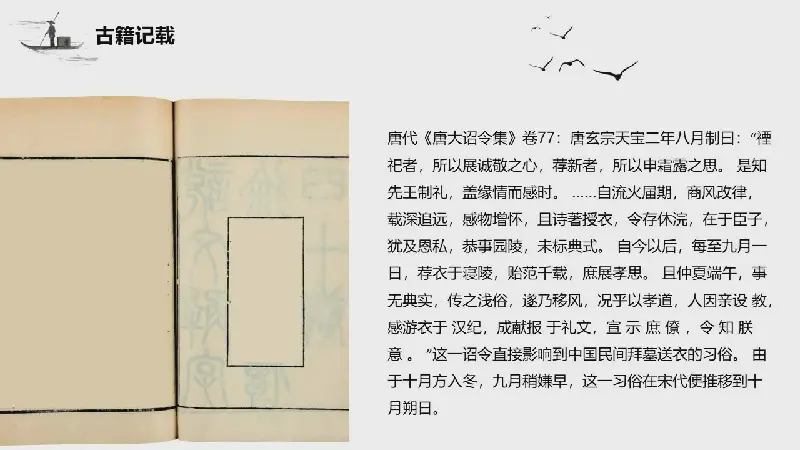 古籍记载
唐代《唐大诏令集》卷77：唐玄宗天宝二年八月制曰：“禋
祀者，所以展诚敬之心，荐新者，所以申霜露之思。 是知
先王制礼，盖缘情而感时。 ……自流火届期，商风改律，
载深追远，感物增怀，且诗著授衣，令存休浣，在于臣子，
犹及恩私，恭事园陵，未标典式。 自今以后，每至九月一
日，荐衣于寝陵，贻范千载，庶展孝思。 且仲夏端午，事
无典实，传之浅俗，遂乃移风，况乎以孝道，人因亲设 教，
感游衣于 汉纪，成献报 于礼文，宣 示 庶 僚 ，令 知 朕
意 。 ”这一诏令直接影响到中国民间拜墓送衣的习俗。 由
于十月方入冬，九月稍嫌早，这一习俗在宋代便推移到十
月朔日。